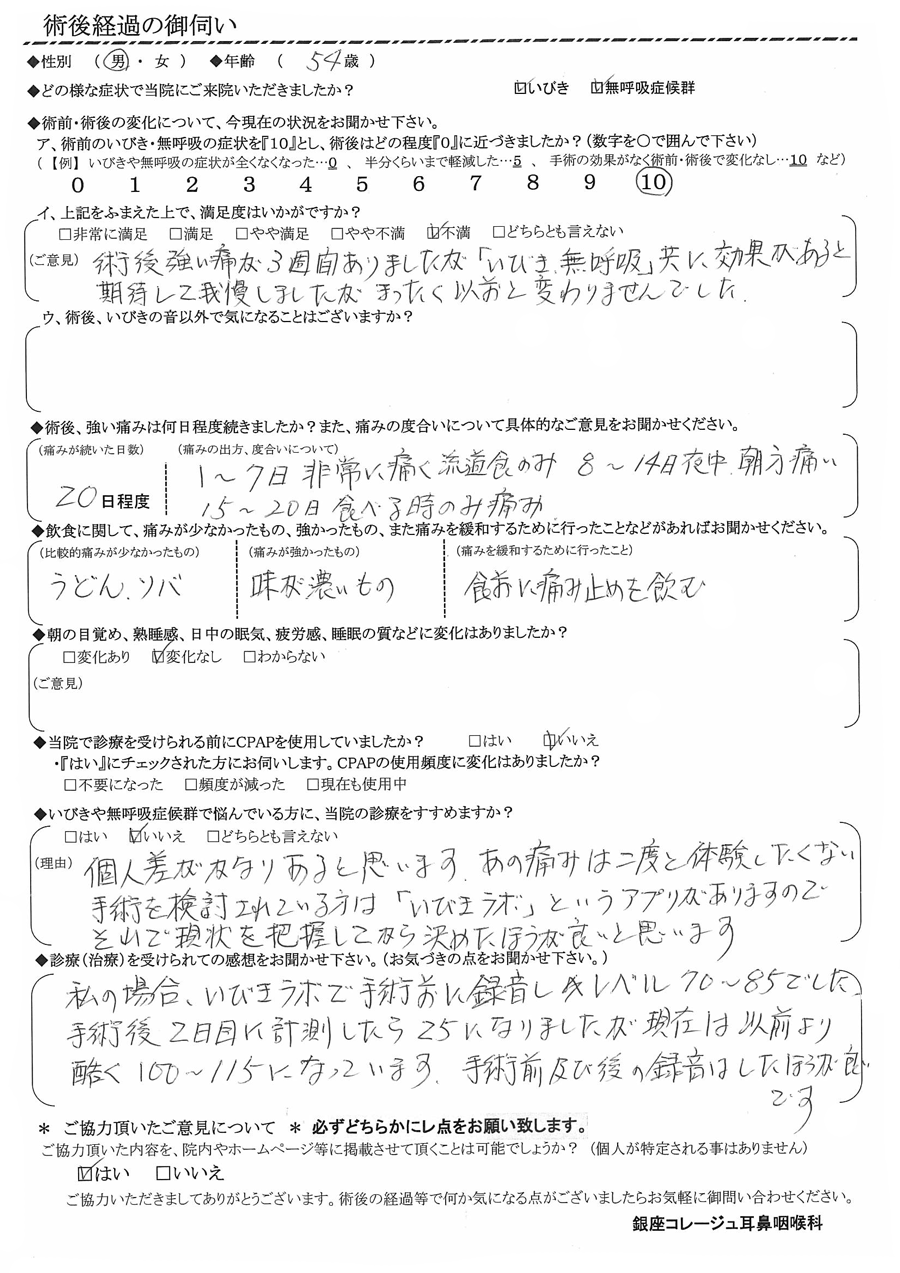 術後経過の御伺い
◆性別 ( 男 ・ 女 ) ◆年齢 ( 54歳 )
◆どの様な症状で当院にご来院いただきましたか? ☑いびき ☑無呼吸症候群
◆術前・術後の変化について、今現在の状況をお聞かせ下さい。
ア、術前のいびき・無呼吸の症状を『10』とし、術後はどの程度『0』に近づきましたか?(数字を〇で囲んで下さい)
(【例】いびきや無呼吸の症状が全くなくなった…0 、 半分くらいまで軽減した…5 、 手術の効果がなく術前・術後で変化なし…10 など)
0 1 2 3 4 5 6 7 8 9 10
イ、上記をふまえた上で、満足度はいかがですか?
□非常に満足 □満足 □やや満足 □やや不満 ☑不満 □どちらとも言えない
(ご意見) 術後強い痛が3週間ありましたが「いびき、無呼吸」共に効果があると
期待して我慢しましたが まったく以前と変わりませんでした.
ウ、術後、いびきの音以外で気になることはございますか?
◆術後、強い痛みは何日程度続きましたか?また、痛みの度合いについて具体的なご意見をお聞かせください。
(痛みが続いた日数) (痛みの出方、度合いについて)
1～7日 非常に痛く流道食のみ 8～14日夜中、朝方痛い
20日程度 15～20日 食べる時のみ痛み
◆飲食に関して、痛みが少なかったもの、強かったもの、また痛みを緩和するために行ったことなどがあればお聞かせください。
(比較的痛みが少なかったもの) (痛みが強かったもの) (痛みを緩和するために行ったこと)
うどん、ソバ 味が濃いもの 食前に痛み止めを飲む
◆朝の目覚め、熟睡感、日中の眠気、疲労感、睡眠の質などに変化はありましたか?
□変化あり ☑変化なし □わからない
(ご意見)
◆当院で診療を受けられる前にCPAPを使用していましたか? □はい ☑いいえ
・『はい』にチェックされた方にお伺いします。CPAPの使用頻度に変化はありましたか?
□不要になった □頻度が減った □現在も使用中
◆いびきや無呼吸症候群で悩んでいる方に、当院の診療をすすめますか?
□はい ☑いいえ □どちらとも言えない
(理由) 個人差がかなりあると思います、あの痛みは二度と体験したくない
手術を検討されている方は「いびきラボ」というアプリがありますので
それで現状を把握してから決めたほうが良いと思います
◆診療(治療)を受けられての感想をお聞かせ下さい。(お気づきの点をお聞かせ下さい。)
私の場合、いびきラボで手術前に録音しレベル70～85でした、
手術後2日目に計測したら25になりましたが現在は以前より
酷く100～115になっています、手術前及び後の録音はしたほうが良い
です
* ご協力頂いたご意見について * 必ずどちらかにレ点をお願い致します。
ご協力頂いた内容を、院内やホームページ等に掲載させて頂くことは可能でしょうか? (個人が特定される事はありません)
☑はい □いいえ
ご協力いただきましてありがとうございます。術後の経過等で何か気になる点がございましたらお気軽に御問い合わせください。
銀座コレージュ耳鼻咽喉科